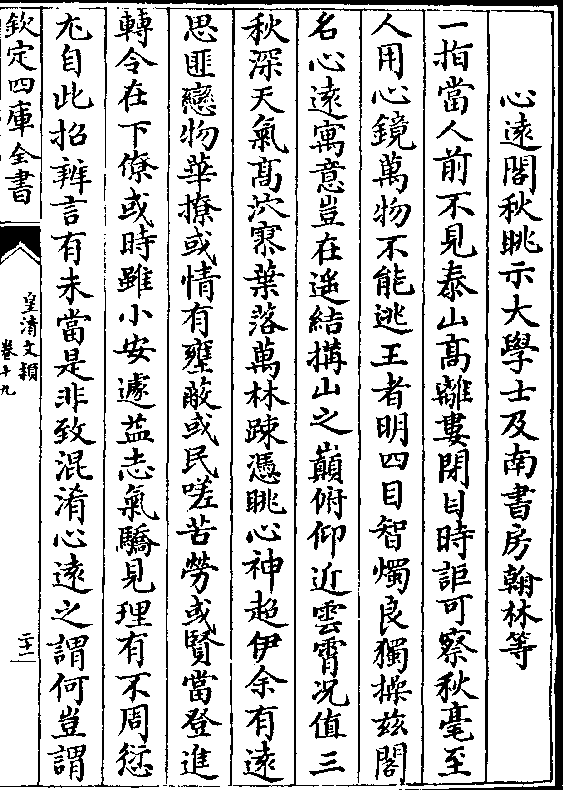 心遠閣秋眺示大學士及南書房翰林等
一指當人前不見泰山高離婁閉目時詎可察秋毫至
人用心鏡萬物不能逃王者明四目智燭良獨操兹閣
名心遠寓意豈在遥結搆山之巔俯仰近雲霄况值三
秋深天氣髙泬寥葉落萬林踈憑眺心神超伊余有遠
思匪戀物華撩或情有壅蔽或民嗟苦勞或賢當登進
轉令在下僚或時雖小安遽益志氣驕見理有不周愆
尤自此招辨言有未當是非致混淆心遠之謂何豈謂
欽定四庫全書
皇清文穎
卷十九
二十一